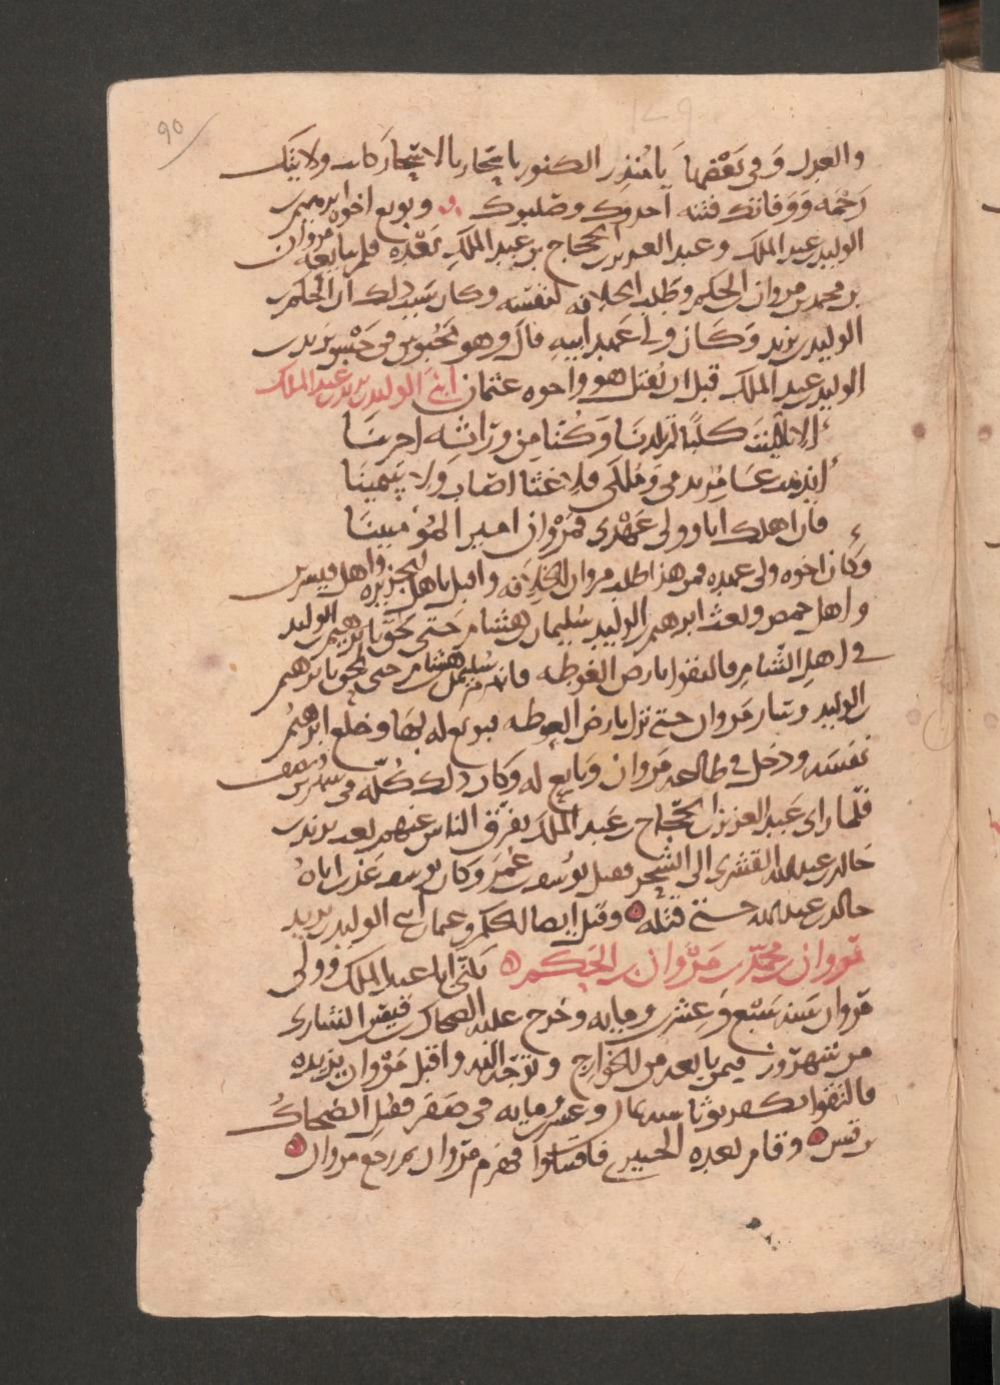 90
129
والعدل وفى بَعْضها يَا مُبَذِر الكنوز يا سَجّاد بالاسْحَار كانت ولايتك
رَحْمَه وَوَفاتك فتنه اخدوك وصلبوك وبويع اخوه ابرهيم بن
الوليد بن عبد الملك وعبد العزيز بن الحجاج بن عبد الملك بَعْده فلم يبايعه مروان
بن محمد بن مروان بن الحكم وطلب الخلافه لنفسه وكان سَبب ذلك ان الحكم بن
الوليد بن يزيد وَكَان ولى عَهد ابيه قال وهو مَحبُوس فى حَبْس يزيد بن
الوليد بن عبد الملك قبل ان يُقتل هو واخوه عثمان ابنَى الوليد بن يزيد بن عبد الملك
الا ليْتَ كلبًا لم تلدنا وَكُنّا مِن ورَاثِه اخرينَا
ايذهب عَامِرٌ بدمى وَمُلكى فلا غثّا اصَاب وَلا سَمِينَا
فان اهلك انا وولى عَهْدى فمرْوان امير المُؤمنينَا
وَكَان اخوه ولى عهده فمن هذا طلب مروان الخلافه واقبل باهل الجزيره واهل قنسرين
واهل حمص وبعث ابرهيم بن الوليد سُليمان بن هشام حَتى لحق بابرهيم بن الوليد
فى اهل الشّام فالتقوا بارض الغوطه فانهزم سُليمن بن هشام حتى لحق بابرهيم
بن الوليد وسَار مَروان حتى نزل بارض الغوطه فبويع له بهَا وخلع ابرهيم
نفسَه ودخل فى طاعه مَروان وبايع له وكان ذلك كُلّه فى شهرين ونصف
فلما راى عَبد العزيز بن الحجّاج بن عَبد الملك تفرّق الناس عنهم بعث يزيد بن
خالد بن عبد الله القشرى الى السّجن فقتل يُوسُف بن عُمَر وكان يوسف عَذب اباهُ
خالد بن عبد الله حتى قتله وقتل ايضا الحكم وعثمان ابنى الوليد بن يزيد
مَروان بن محمّد بن مَرْوان بن الحَكَم يكنّى ابا عبد الملك وولى
مَروان سَنه سَبْع وَعشرين ومايه وخرج عليه الضحاك بن قيس الشارى
من شهرزور فيمن بايعه من الخوارج وتوجّه اليه واقبل مَرْوان يريده
فالتقوا بكفرتوثا سنه ثمان وعشرين ومايه فى صَفَر فقتل الضحاك
بن قيس وقام بعده الخيبرى فاقتتلوا فهزم مَروان ثم رجع مروان